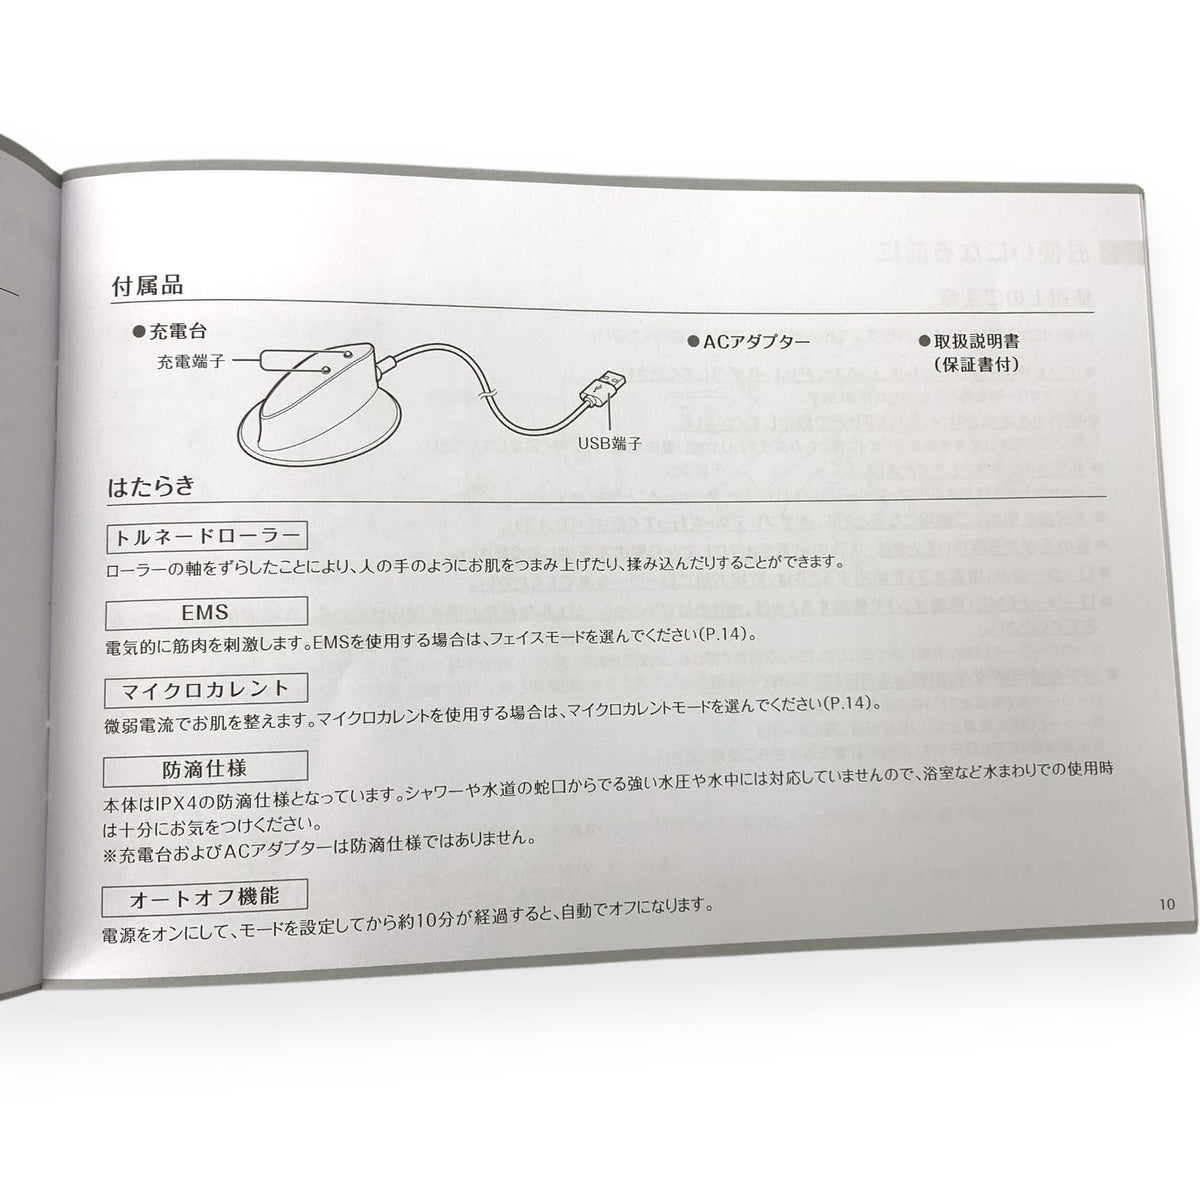 付属品
●充電台
充電端子
USB端子
●ACアダプター
●取扱説明書
(保証書付)
はたらき
トルネードローラー
ローラーの軸をずらしたことにより、人の手のようにお肌をつまみ上げたり、揉み込んだりすることができます。
EMS
電気的に筋肉を刺激します。EMSを使用する場合は、フェイスモードを選んでください(P.14)。
マイクロカレント
微弱電流でお肌を整えます。マイクロカレントを使用する場合は、マイクロカレントモードを選んでください(P.14)。
防滴仕様
本体はIPX4の防滴仕様となっています。シャワーや水道の蛇口からでる強い水圧や水中には対応していませんので、浴室など水まわりでの使用時
は十分にお気をつけください。
※充電台およびACアダプターは防滴仕様ではありません。
オートオフ機能
電源をオンにして、モードを設定してから約10分が経過すると、自動でオフになります。
10